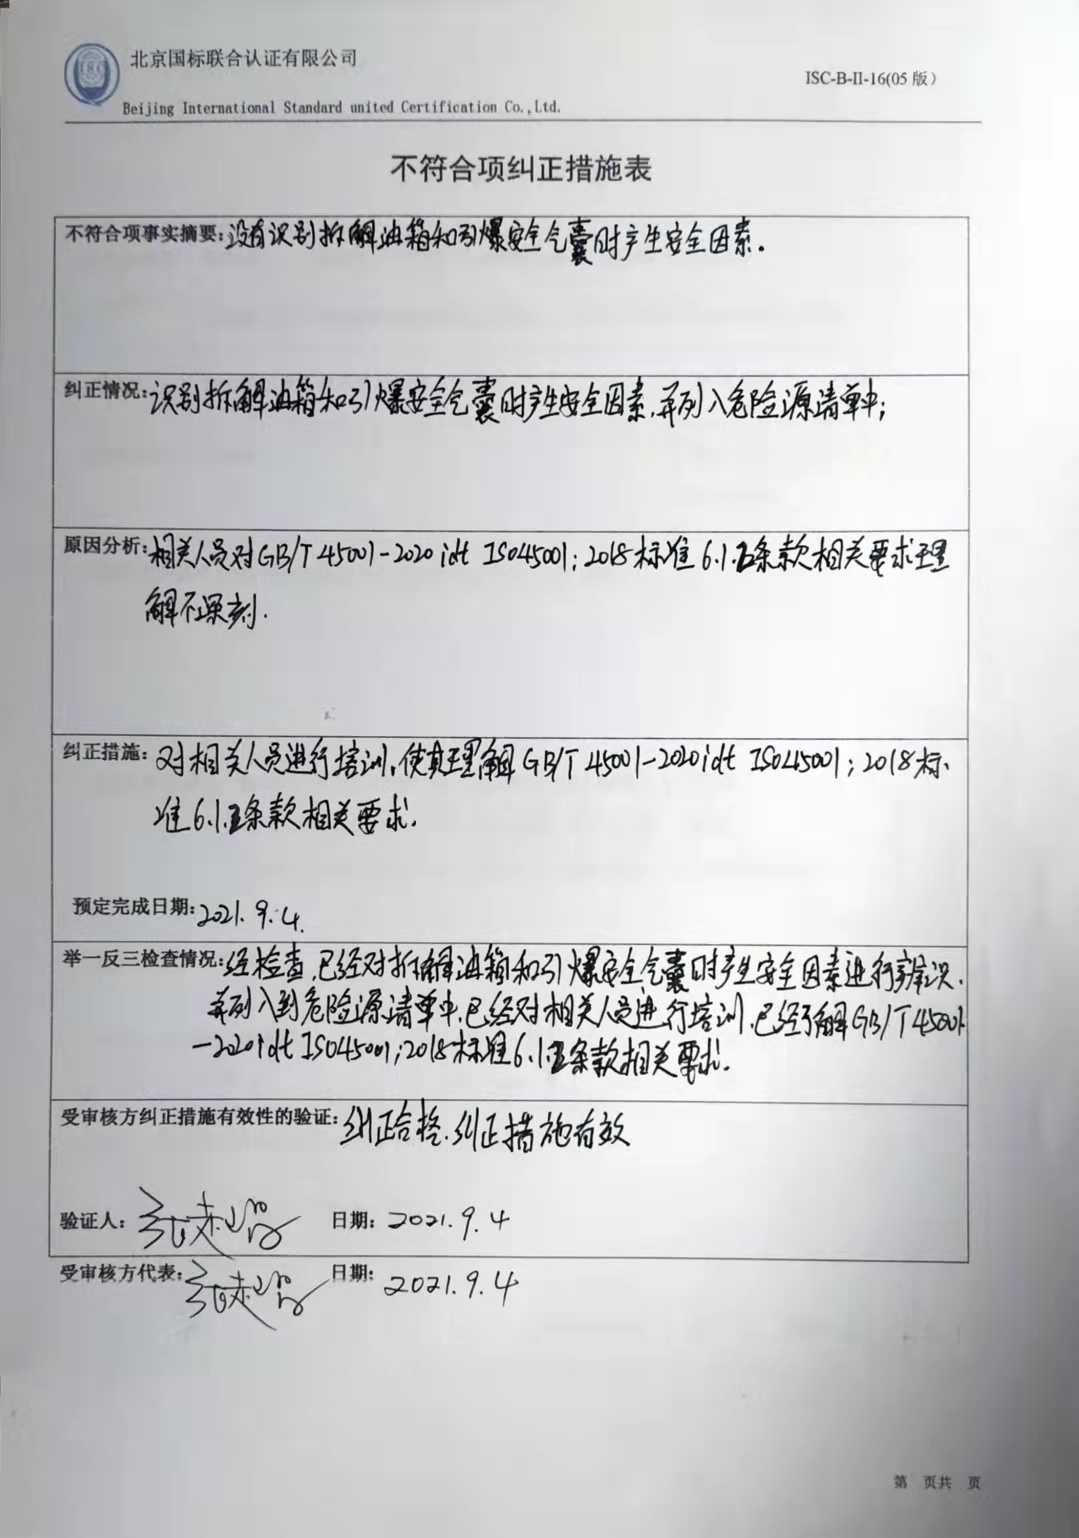 北京国标联合认证有限公司
ISC-B-II-16(05 版)
Beijing International Standard united Certification Co.,Ltd.
不符合项纠正措施表
不符合项事实摘要:没有识别拆解油箱和引爆安全气囊时产生安全因素.
纠正情况:识别拆解油箱和引爆安全气囊时产生安全因素,并列入危险源清单中;
原因分析:相关人员对GB/T 45001-2020 idt ISO45001:2018标准 6.1.2条款相关要求理
解不深刻.
纠正措施:对相关人员进行培训,使其理解GB/T 45001-2020 idt ISO45001:2018标
准6.1.2条款相关要求.
预定完成日期:2021.9.4.
举一反三检查情况:经检查,已经对拆解油箱和引爆安全气囊时产生安全因素进行辨识,
并列入到危险源清单中,已经对相关人员进行培训,已经了解GB/T 45001
-2020 idt ISO45001:2018标准6.1.2条款相关要求.
受审核方纠正措施有效性的验证:纠正合格,纠正措施有效
验证人: 日期:2021.9.4
受审核方代表: 日期:2021.9.4
第 页共 页